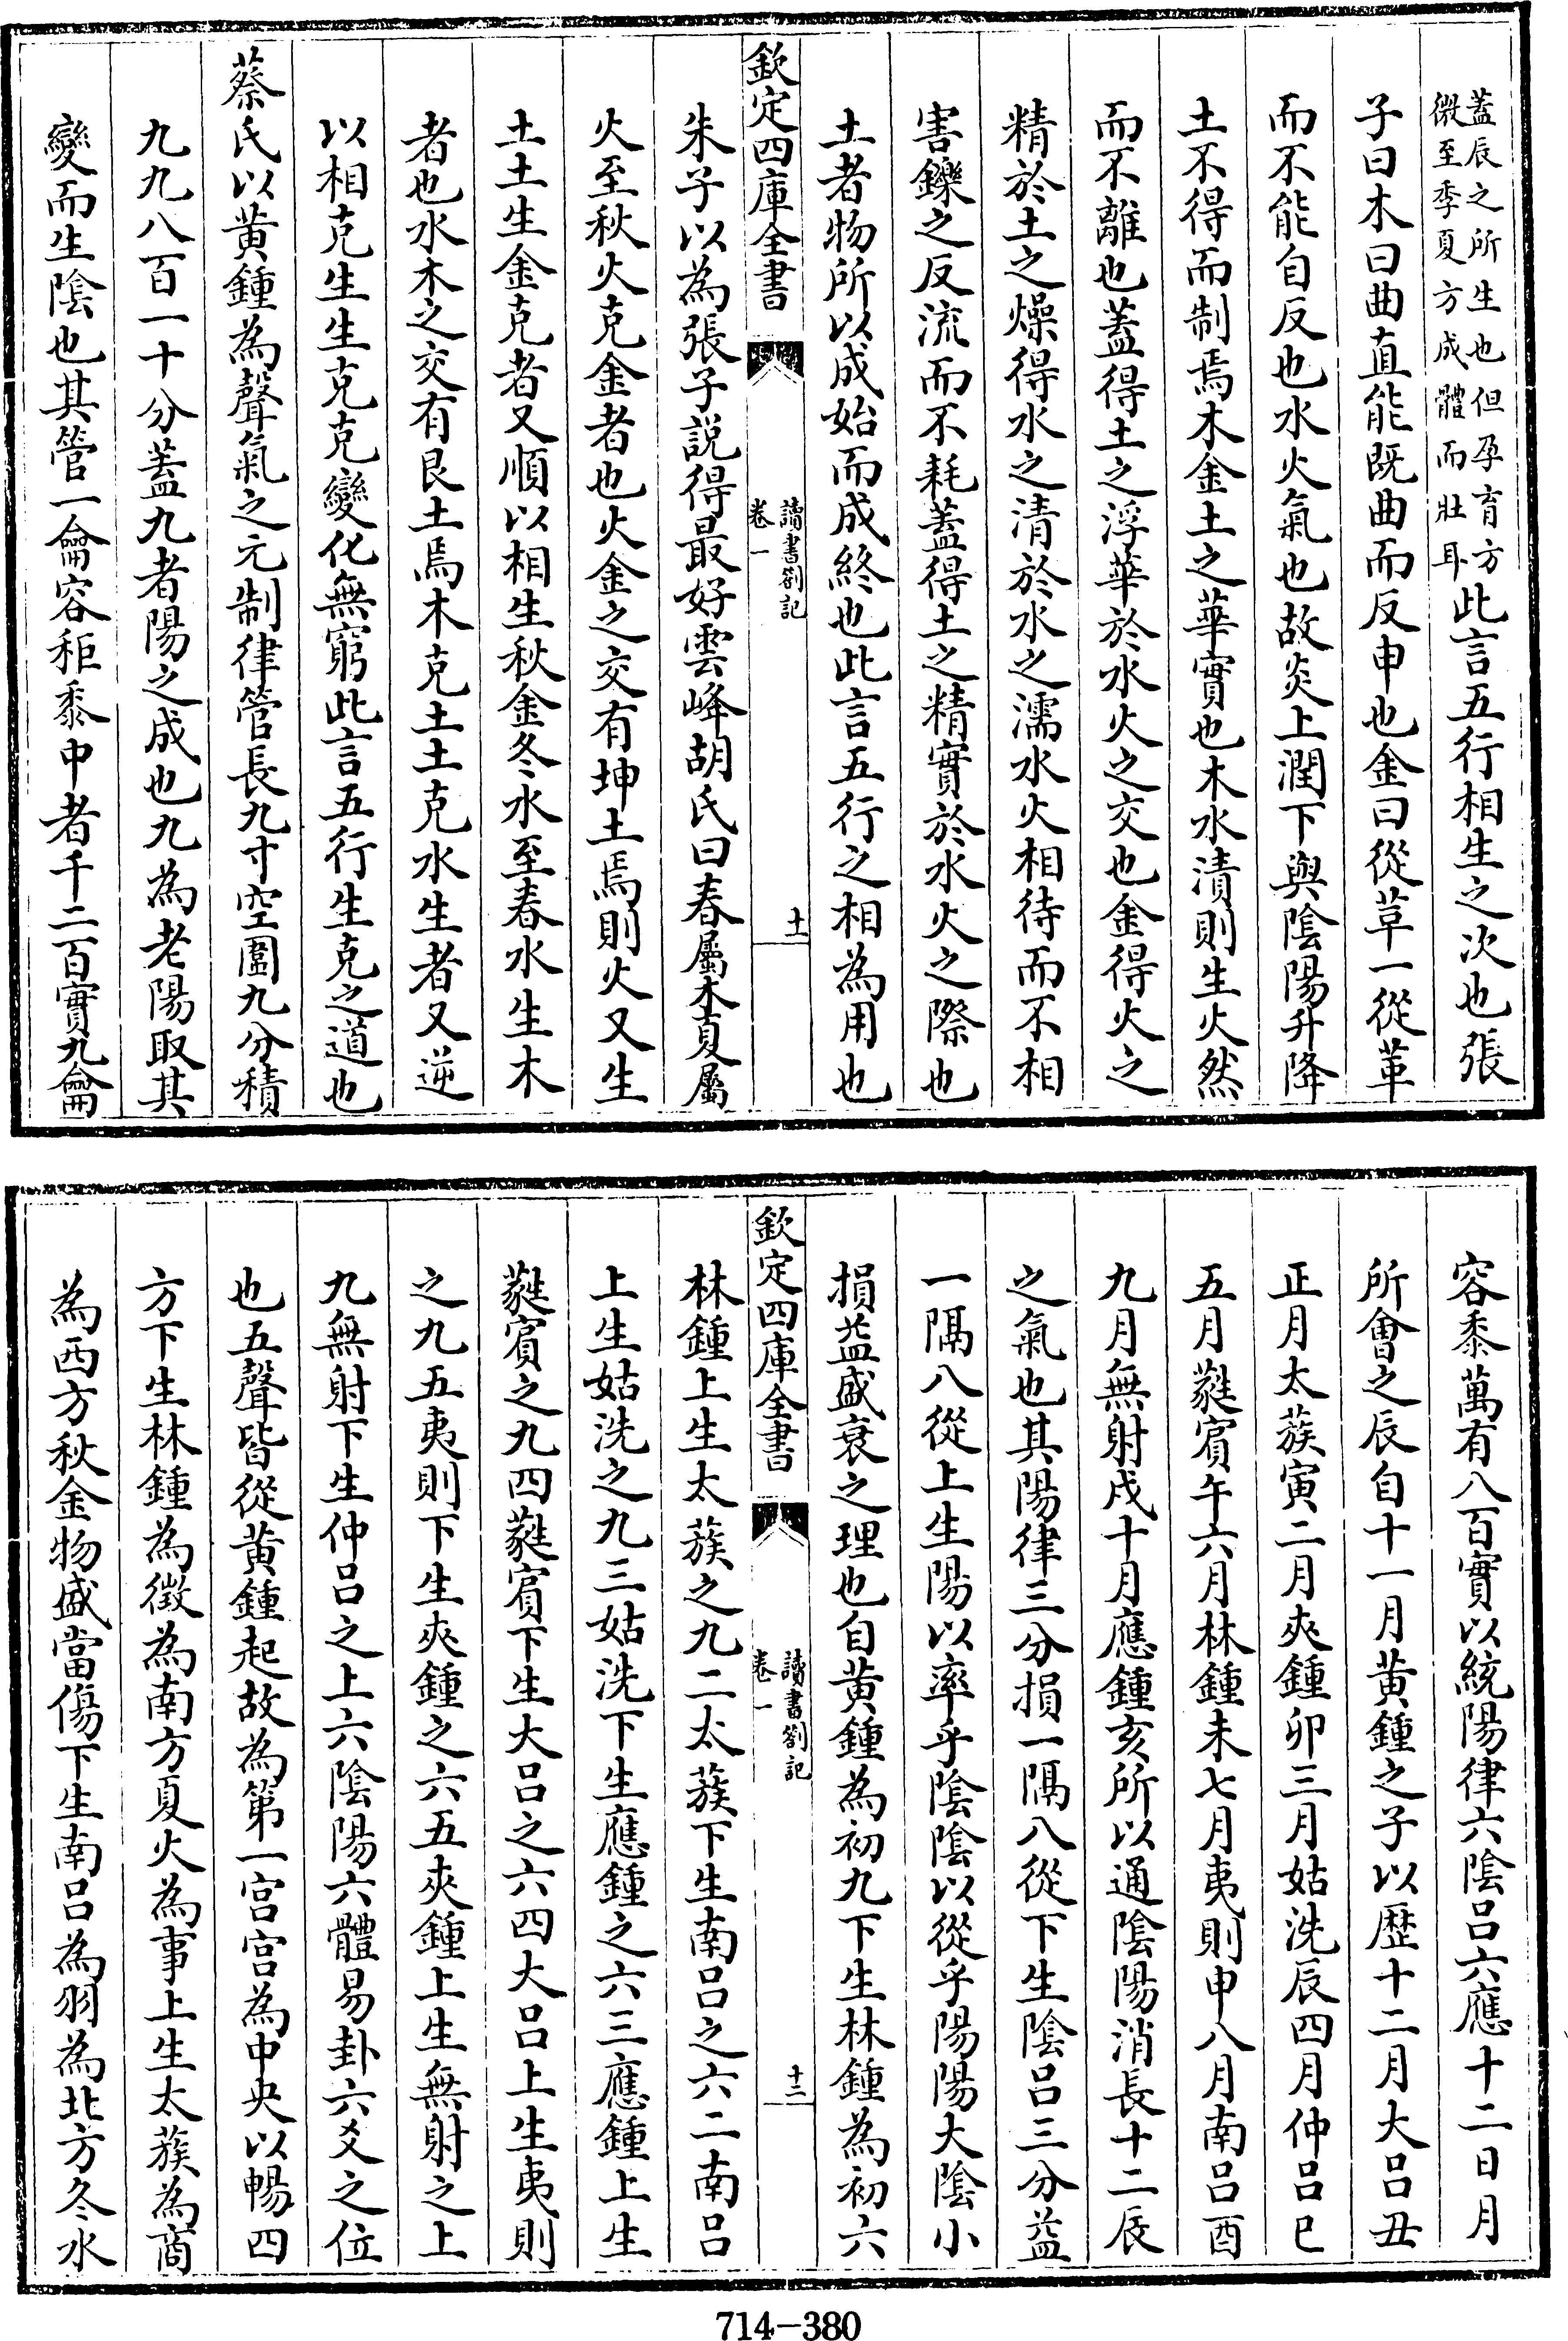 蓋辰之所生也但孕育方
微至季夏方成體而壯耳
此言五行相生之次也張
子曰木曰曲直能既曲而反申也金曰從革一從革
而不能自反也水火氣也故炎上潤下與陰陽升降
土不得而制焉木金土之華實也木水漬則生火然
而不離也蓋得土之浮華於水火之交也金得火之
精於土之燥得水之清於水之濡水火相待而不相
害鑠之反流而不耗蓋得土之精實於水火之際也
土者物所以成始而成終也此言五行之相為用也
欽定四庫全書
讀書劄記
卷一
十一
朱子以為張子說得最好雲峰胡氏曰春屬木夏屬
火至秋火克金者也火金之交有坤土焉則火又生
土土生金克者又順以相生秋金冬水至春水生木
者也水木之交有艮土焉木克土土克水生者又逆
以相克生生克克變化無窮此言五行生克之道也
蔡氏以黃鍾為聲氣之元制律管長九寸空圍九分積
九九八百一十分蓋九者陽之成也九為老陽取其
變而生陰也其管一龠容秬黍中者千二百實九龠
容黍萬有八百實以統陽律六陰呂六應十二日月
所會之辰自十一月黃鍾之子以歷十二月大呂丑
正月太蔟寅二月夾鍾卯三月姑洗辰四月仲呂巳
五月蕤賓午六月林鍾未七月夷則申八月南呂酉
九月無射戌十月應鍾亥所以通陰陽消長十二辰
之氣也其陽律三分損一隔八從下生陰呂三分益
一隔八從上生陽以率乎陰陰以從乎陽陽大陰小
損益盛衰之理也自黃鍾為初九下生林鍾為初六
欽定四庫全書
讀書劄記
卷一
十二
林鍾上生太蔟之九二太蔟下生南呂之六二南呂
上生姑洗之九三姑洗下生應鍾之六三應鍾上生
蕤賓之九四蕤賓下生大呂之六四大呂上生夷則
之九五夷則下生夾鍾之六五夾鍾上生無射之上
九無射下生仲呂之上六陰陽六體易卦六爻之位
也五聲皆從黃鍾起故為第一宮宮為中央以暢四
方下生林鍾為徵為南方夏火為事上生太蔟為商
為西方秋金物盛當傷下生南呂為羽為北方冬水
714-380